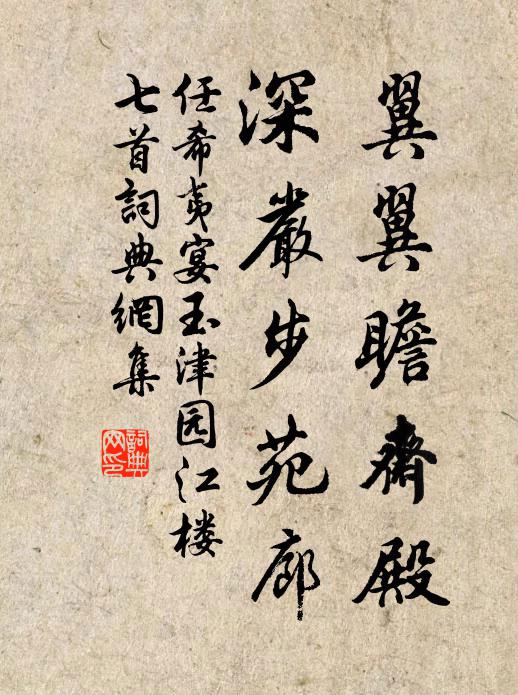 翼翼瞻齋殿
深嚴步苑廊
任希夷宴玉津园江楼
七首詞典網集
詞典网印